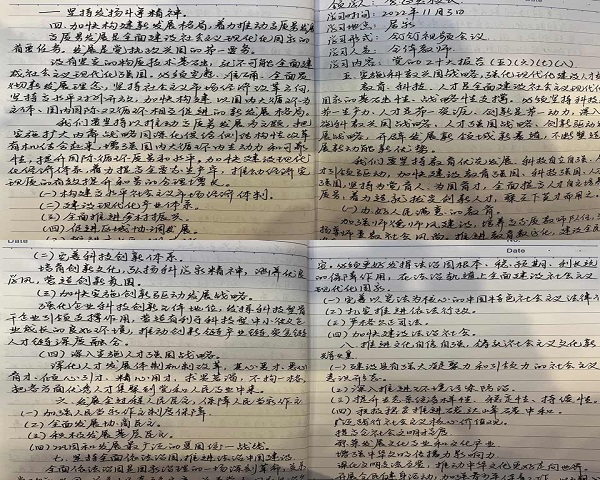 ——坚持发扬斗争精神。
四、加快构建新发展格局，着力推动高质量发展
高质量发展是全面建设社会主义现代化国家的
首要任务。发展是党执政兴国的第一要务。
没有坚实的物质技术基础，就不可能全面建
成社会主义现代化强国。必须完整、准确、全面贯
彻新发展理念，坚持社会主义市场经济改革方向，
坚持高水平对外开放，加快构建以国内大循环为
主体、国内国际双循环相互促进的新发展格局。
我们要坚持以推动高质量发展为主题，把
实施扩大内需战略同深化供给侧结构性改革
有机结合起来，增强国内大循环内生动力和可靠
性，提升国际循环质量和水平，加快建设现代
化经济体系，着力提高全要素生产率，推动经济实
现质的有效提升和量的合理增长。
(一)构建高水平社会主义市场经济体制。
(二)建设现代化产业体系。
(三)全面推进乡村振兴。
(四)促进区域协调发展。
时间：2022年11月5日
学习形式：
内容：党的二十大报告(五)(六)(七)(八)
五、实施科教兴国战略，强化现代化建设人才
教育、科技、人才是全面建设社会主义现代化
国家的基础性、战略性支撑。必须坚持科技是
第一生产力、人才是第一资源、创新是第一动力，深入
实施科教兴国战略、人才强国战略、创新驱动发
展战略，开辟发展新领域新赛道，不断塑造
发展新动能新优势。
我们要坚持教育优先发展、科技自立自强、人
才引领驱动，加快建设教育强国、科技强国、人才
强国，坚持为党育人、为国育才，全面提高人才自主培养
质量，着力造就拔尖创新人才，聚天下英才而用之。
(一)办好人民满意的教育。
加强师德师风建设，培养高素质教师队伍，弘
扬尊师重教社会风尚。推进教育数字化，建设全民
Date
(二)完善科技创新体系
培育创新文化，弘扬科学家精神，涵养优良
学风，营造创新氛围。
(三)加快实施创新驱动发展战略。
强化企业科技创新主体地位，发挥科技型骨
干企业引领支撑作用，营造有利于科技型中小微企
业成长的良好环境，推动创新链产业链资金链
人才链深度融合。
(四)深入实施人才强国战略。
深化人才发展体制机制改革，真心爱才、悉心
育才、倾心引才、精心用才，求贤若渴，不拘一格，
把各方面优秀人才集聚到党和人民事业中来。
六、发展全过程人民民主，保障人民当家作主
(一)加强人民当家作主制度保障。
(二)全面发展协商民主。
(三)积极发展基层民主。
(四)巩固和发展最广泛的爱国统一战线。
七、坚持全面依法治国，推进法治中国建设
全面依法治国是国家治理的一场深刻革命，
No.
Date
必须更好发挥法治固根本、稳预期、利长远
的保障作用，在法治轨道上全面建设社会主义
现代化国家。
(一)完善以宪法为核心的中国特色社会主义法律
(二)扎实推进依法行政。
(三)严格公正司法。
(四)加快建设法治社会。
八、推进文化自信自强，铸就社会主义文化新
(一)建设具有强大凝聚力和引领力的社会主义
意识形态。
(四)
广泛践行社会主义核心价值观。
提高全社会文明程度。
繁荣发展文化事业和文化产业。
增强中华文明传播力影响力。
深化文明交流互鉴，推动中华文化更好走向世界。